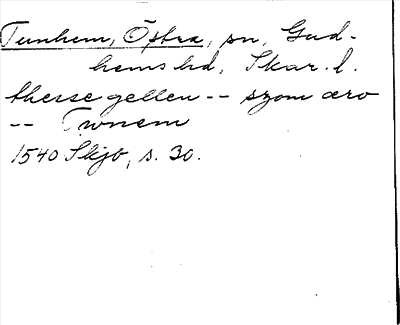 Tunhem, Östra, sn, Gud-
hems hd, Skar. l.
thesse gellen -- szom ære
-- Twnem
1540 Skjb, s. 30.